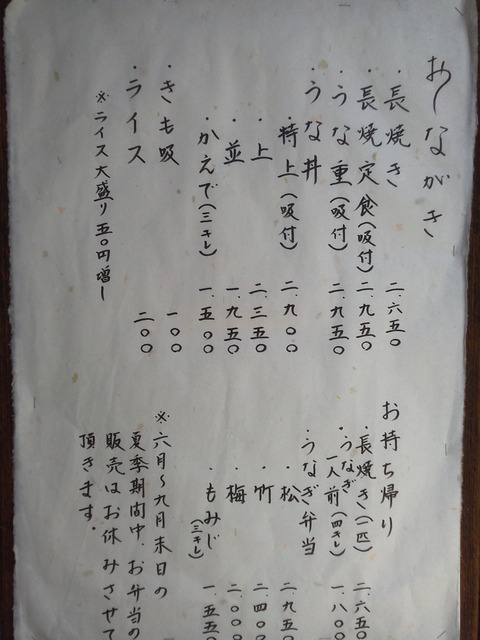 おしながき
・長焼き 二、六五〇
・長焼定食(吸付) 二、九五〇
・うな重(吸付) 二、九五〇
・うな丼
・特上(吸付) 二、九〇〇
・上 二、三五〇
・並 一、九五〇
・かえで(三キレ) 一、五〇〇
・きも吸 一〇〇
・ライス 二〇〇
※ライス大盛り五〇円増し
お持ち帰り
・長焼き(一匹) 二、六五〇
・うなぎ一人前(四キレ) 一、八〇〇
・うなぎ弁当
・松 二、九五〇
・竹 二、四〇〇
・梅 二、〇〇〇
・もみじ(三キレ) 一、五五〇
※六月〜九月末日の
夏季期間中、お弁当の
販売はお休みさせて
頂きます。